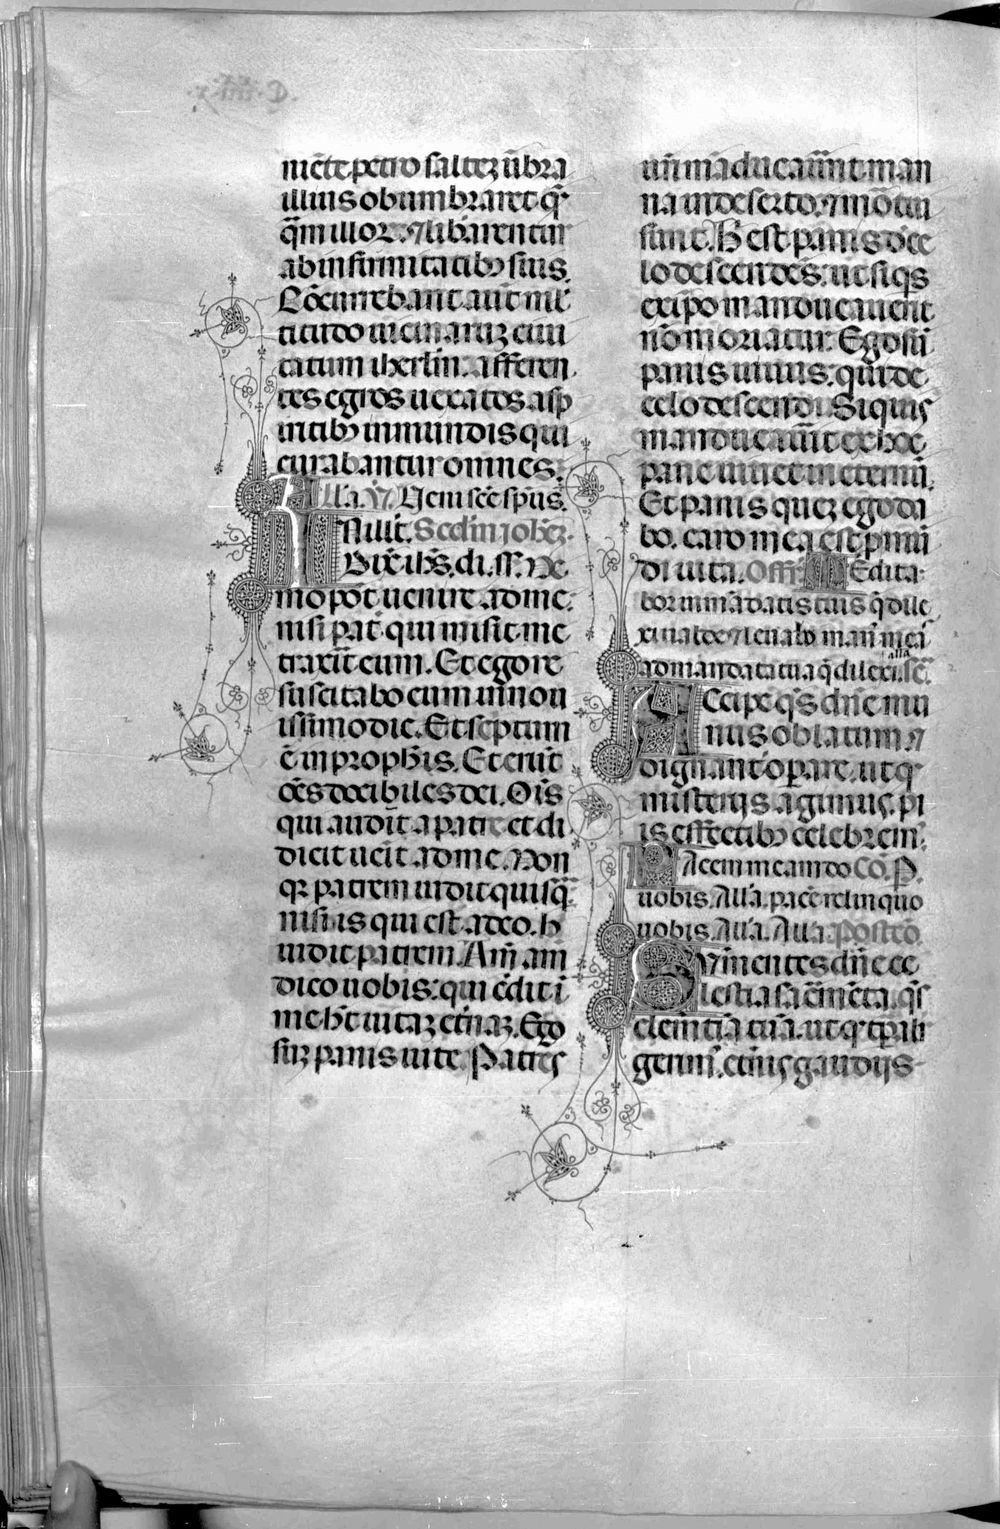 niēte petro saltez ūbra
illius obumbraret q̄
q̄m illoꝝ. ⁊ libarentur
ab infirmitatibꝫ suis.
Cōcurrebant aut̄ ml̄
titudo uicinarūz ciui
tatum iherlm̄. afferen
tes egros uexatos. a sp̄
iritibꝫ inmundis qui
curabantur omnes.
Alla. ℣. Ueni sc̄e spūs.
In illo t. Secdm̄ ioh̄ez.
Dix̄ ih̄s. di. ss̄. Ne
mo pōt uenire ad me.
nisi pat̄ qui misit me
traxit̄ eum. Et ego re
suscitabo eum in nou
issimo die. Et scp̄tum
ē in prophīs. Et erūt
oēs docibiles dei. Ois̄
qui audiūt a patre et di
dicit uenit ad me. Non
qꝛ patrem uidit quisq̄.
nisi is qui est a deo. h̄
uidit patrem. Am̄ am̄
dico uobis: qui c̄dit ī
me h̄t uitaz et̄naz. Ego
suz panis uite. Patres
ur̄i māducauer̄unt man
na in deserto. ⁊ mōtui
sunt. H̄ est panis d̄ ce
lo descendēs. ut siqs
ex ip̄o manducauerit
nō moriatur. Ego sū
panis uiuus. qui de
celo descendi. Siquis
manducauit̄ ex hoc
pane uiuet in eternū.
Et panis quez ego da
bo. caro mea est p̄ mūdi
di uita. Off. Medita
bor in mādatis tuis q̄ dile
xi ualde. ⁊ leuabo man̄ meā
ad mandata tua q̄ dilexi. alla. Sc̄a.
Accipe q̄s dn̄e mu
nus oblatum. ⁊
dignant̄ opare. ut q̄
misterijs agimus. pi
is effectibꝫ celebrem̄.
Pacem meam do Cō. P.
uobis. Alla. pacē relinquo
uobis. Alla. Alla. Postcō.
Sumentes dn̄e ce
lestia sacm̄enta. q̄s
clem̄tiā tuā. ut q̄ tp̄ali
ter gerim̄. et̄nis gaudijs